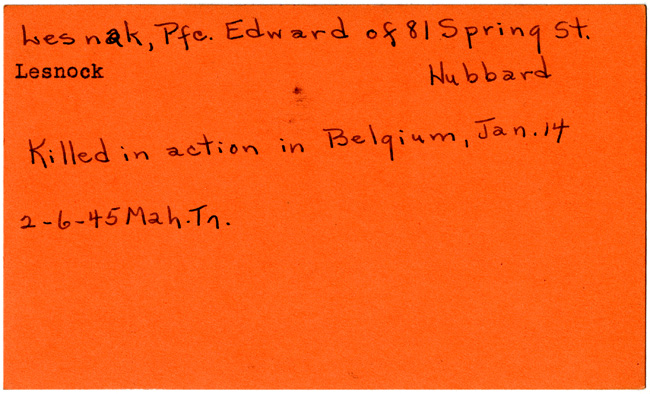 Lesnak, Pfc. Edward of 81 Spring St.
Lesnock
Hubbard
Killed in action in Belgium, Jan. 14
2-6-45 Mah. Tn.